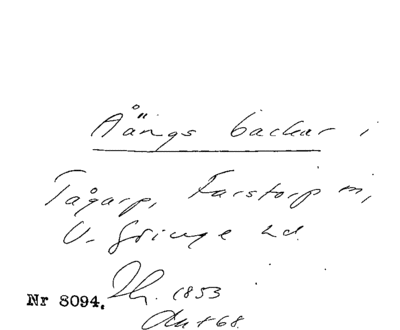 Aängs backar i
Tågarp, Farstorp m,
V. Göinge hd.
Nr 8094. Th. 1853